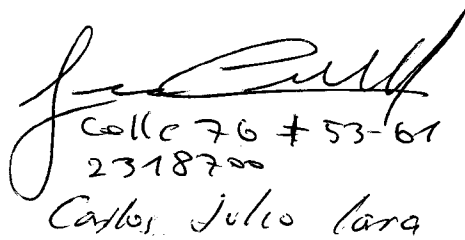 Calle 76 # 53-61
2318700
Carlos Julio Lara